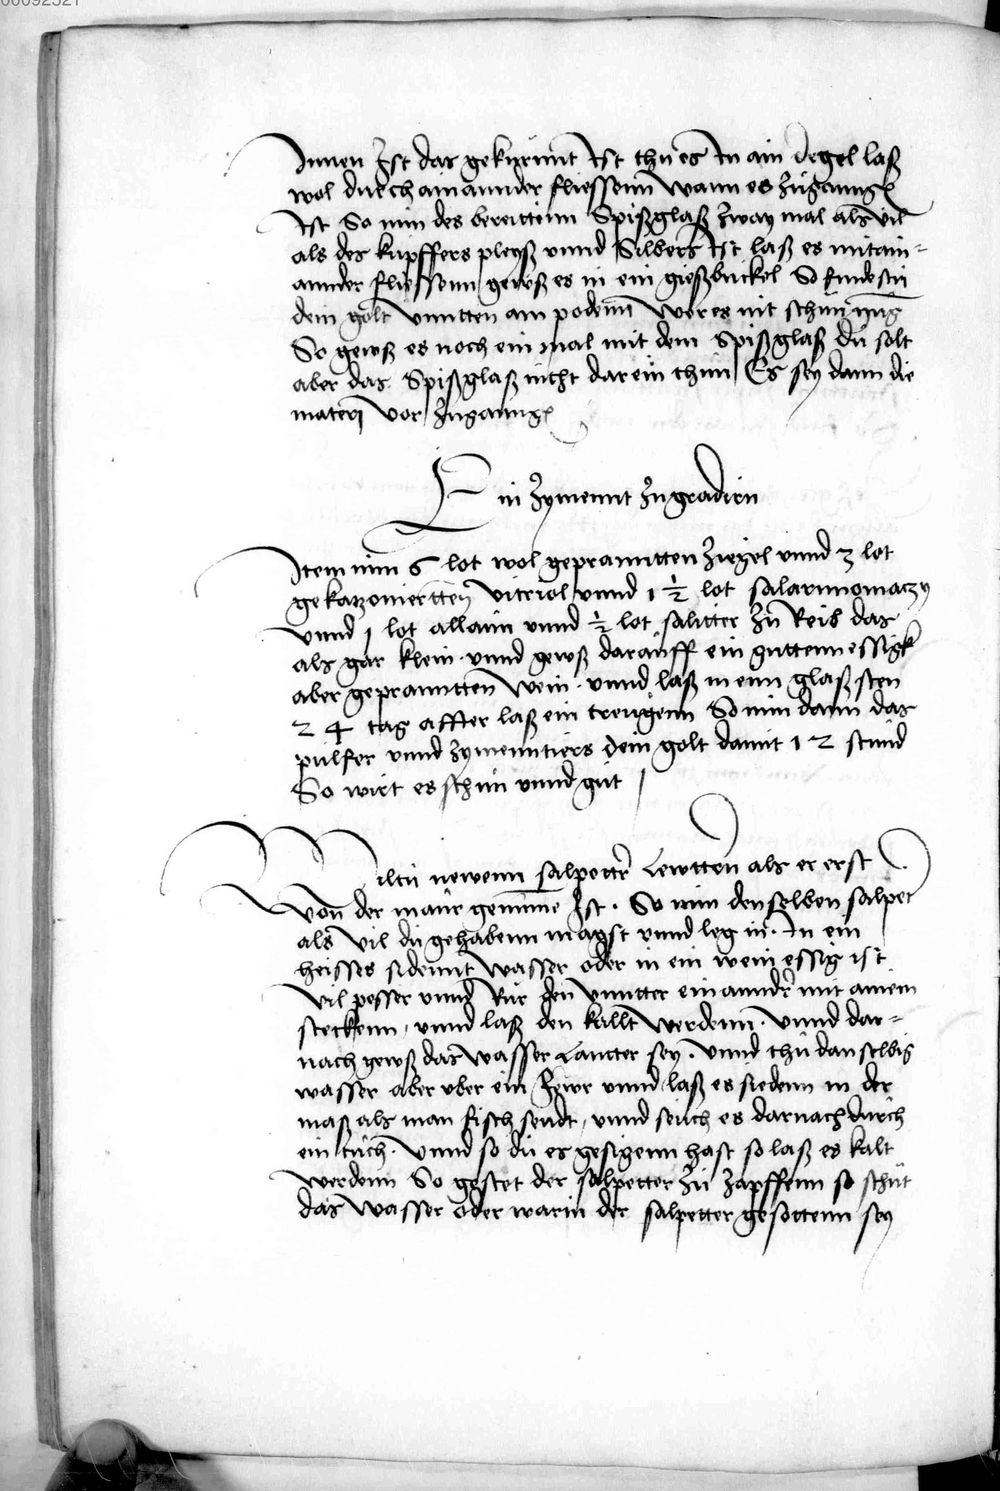 00092521
Innen Ist das gekurnnt Ist thu es In ain degel laß
wol durch ainannder fliessenn wann es zuganng
Ist So nim des bereittenn Spißglaß zway mal als vil
als des kupffers pleyß vnnd Silbers Ist laß es mitain=
annder fliessenn gewß es in ein gießbuckel So findestu
dein golt vnntten am podenn Wer es nit schin gnug
So gewß es noch ein mal mit dem Spißglaß du solt
aber das Spißglaß nicht darein thun Es sey dann die
matery vor zuganng
Ein zymennt zu gradirn
Item nim 6 lot wol gepranntten ziegel vnnd 3 lot
gekatzonierttenn vitriol vnnd 1 ½ lot salarmomaczy
vnnd 1 lot allaun vnnd ½ lot salitter zu Reib das
als gar klein · vnnd gewß darauff ein guttenn essigk
aber gepranntten wein · vnnd laß in eim glaß sten
24 tag affter laß ein treugenn So nim dann das
pulfer vnnd zymenntiers dein golt damit 12 stund
So wirt es schin vnnd gut
Wiltu newenn salpettr Lewtten als er erst
von der maur genumme Ist · So nim denselben salpet
als vil du gehabenn magst vnnd leg in · In ein
heisses sidennt wasser oder in ein wein essig ist
vil pesser vnnd Rur den vnntter ein anndr mit ainem
steckenn , vnnd laß den kallt werdenn · vnnd dar=
nach gewß das wasser Lautter sey · vnnd thu dan selbig
wasser aber vber ein fewr vnnd laß es siedenn in der
maß als man fisch seudt , vnnd seuch es darnach durch
ein tuch · vnnd so du es gesigenn hast so laß es kalt
werdenn So gestet der salpetter zu zapffenn so schut
das wasser oder warin der salpetter gesottenn sey